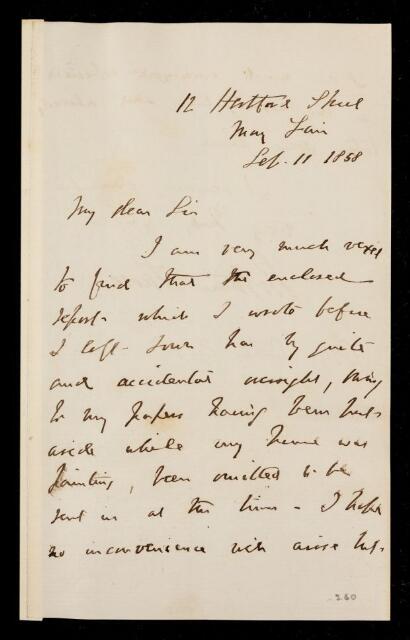 12 Hertford Street
May Fair
Sep. 11 1858
My dear Sir
I am very much vexed
to find that the enclosed
report which I wrote before
I left town has by quite
and accidental oversight, owing
to my papers having been put
aside while my house was
painting, been omitted to be
sent in at the time - I hope
no inconvenience will arise but
260